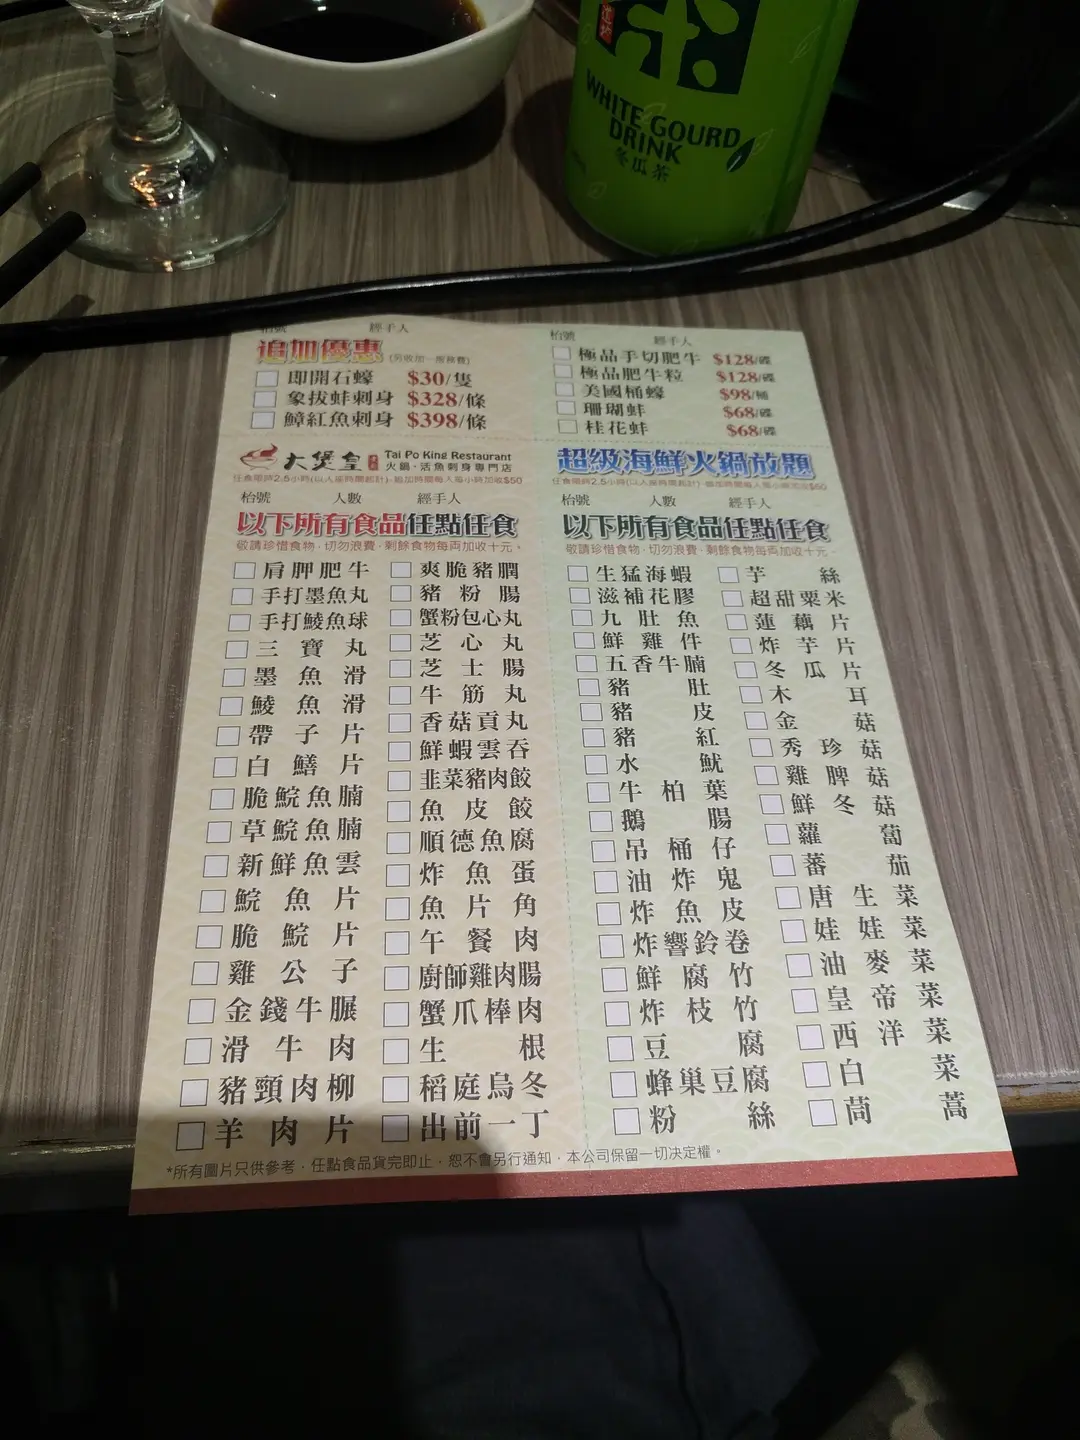 WHITE GOURD
DRINK
冬瓜茶
枱號 經手人
追加優惠 (另收加一服務費)
即開石蠔 $30/隻
象拔蚌刺身 $328/條
鱆紅魚刺身 $398/條
枱號 經手人
極品手切肥牛 $128/碟
極品肥牛粒 $128/碟
美國桶蠔 $98/桶
珊瑚蚌 $68/碟
桂花蚌 $68/碟
大煲皇 Tai Po King Restaurant
火鍋·活魚刺身專門店
任食限時2.5小時(以入座時間起計)·追加時間每人每小時加收$50
枱號 人數 經手人
以下所有食品任點任食
敬請珍惜食物·切勿浪費·剩餘食物每両加收十元。
肩胛肥牛
手打墨魚丸
手打鯪魚球
三寶丸
墨魚滑
鯪魚滑
帶子片
白鱔片
脆鯇魚腩
草鯇魚腩
新鮮魚雲
鯇魚片
脆鯇片
雞公子
金錢牛𦟌
滑牛肉
豬頸肉柳
羊肉片
爽脆豬膶
豬粉腸
蟹粉包心丸
芝心丸
芝士腸
牛筋丸
香菇貢丸
鮮蝦雲吞
韭菜豬肉餃
魚皮餃
順德魚腐
炸魚蛋
魚片角
午餐肉
廚師雞肉腸
蟹爪棒肉
生根
稻庭烏冬
出前一丁
超級海鮮火鍋放題
任食限時2.5小時(以入座時間起計)·追加時間每人每小時加收$50
枱號 人數 經手人
以下所有食品任點任食
敬請珍惜食物·切勿浪費·剩餘食物每両加收十元。
生猛海蝦
滋補花膠
九肚魚
鮮雞件
五香牛腩
豬肚
豬皮
豬紅
水魷
牛柏葉
鵝腸
吊桶仔
油炸鬼
炸魚皮
炸響鈴卷
鮮腐竹
炸枝竹
豆腐
蜂巢豆腐
粉絲
芋絲
超甜粟米
蓮藕片
炸芋片
冬瓜片
木耳
金菇
秀珍菇
雞脾菇
鮮冬菇
蘿蔔
蕃茄
唐生菜
娃娃菜
油麥菜
皇帝菜
西洋菜
白菜
茼蒿
*所有圖片只供參考，任點食品貨完即止，恕不會另行通知，本公司保留一切決定權。